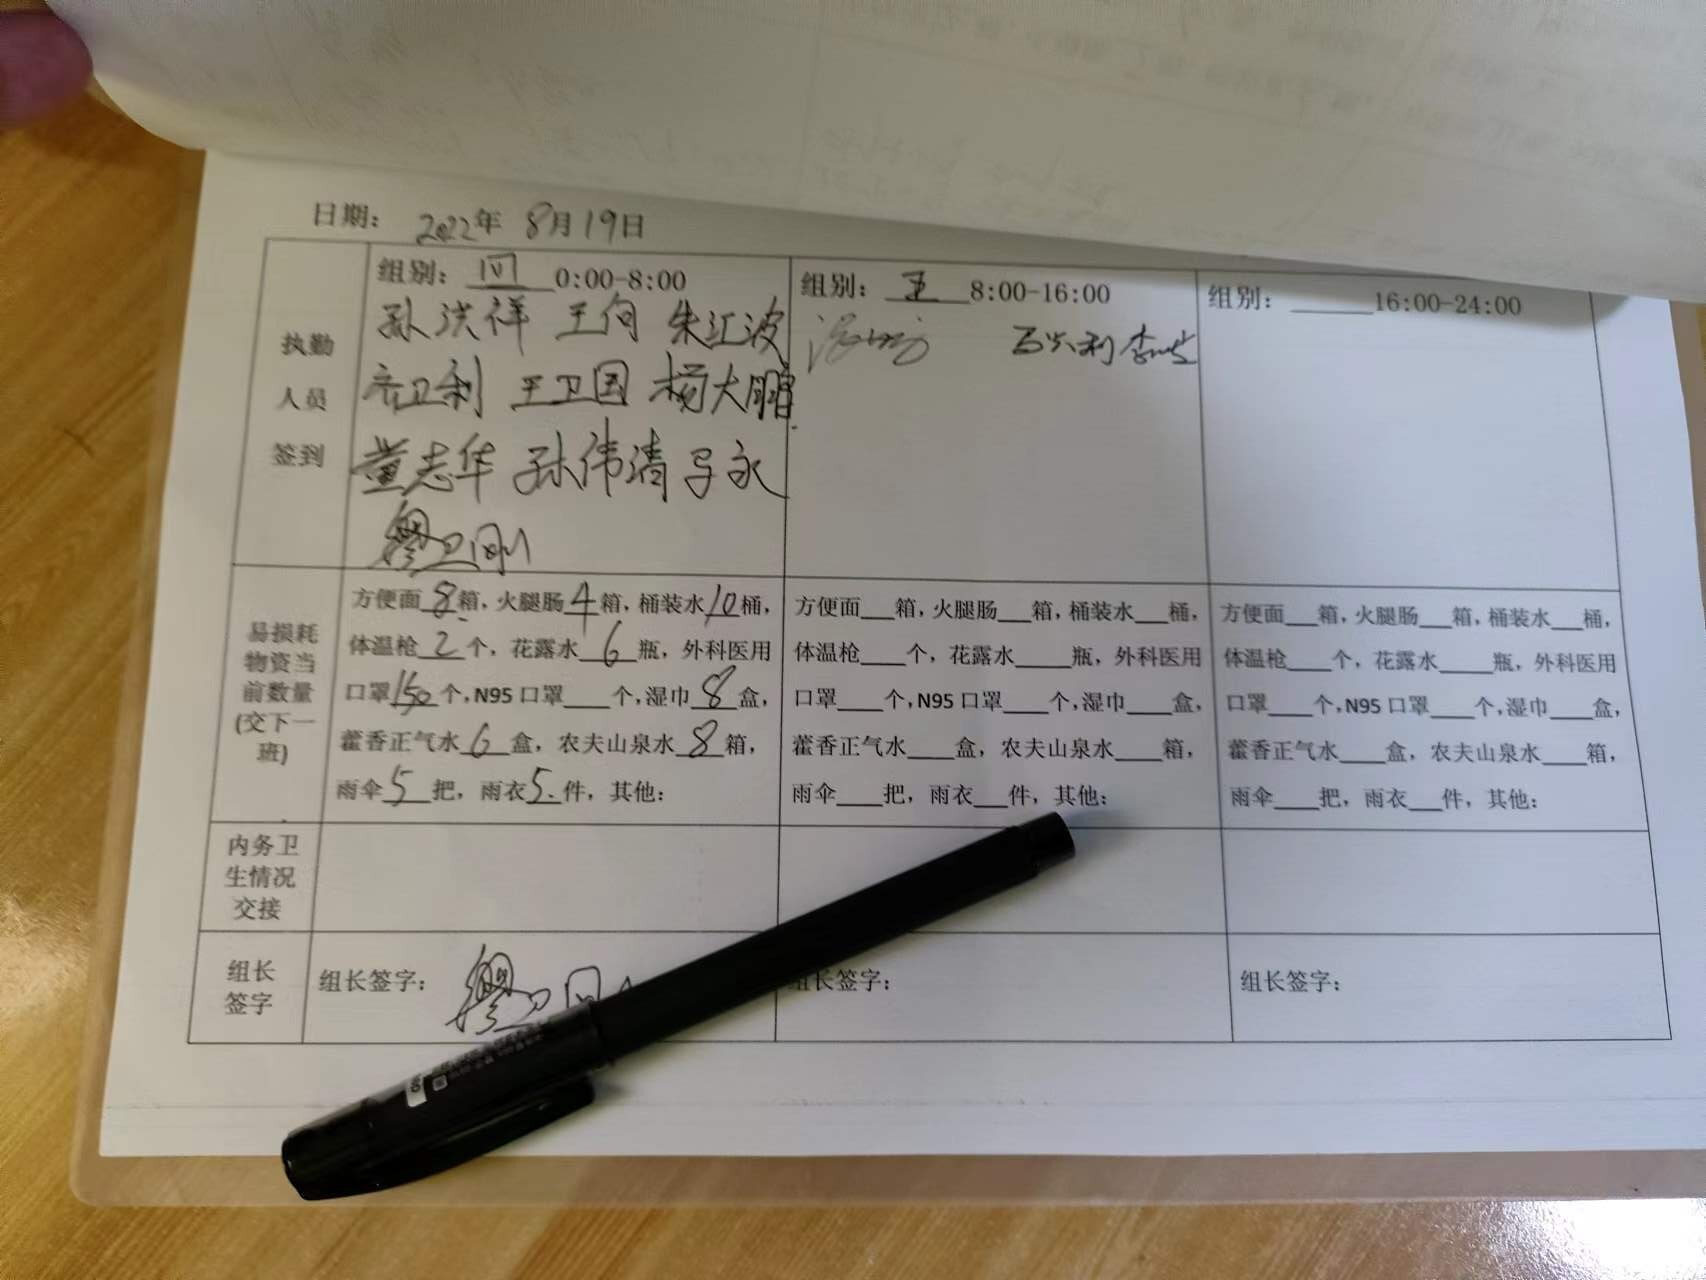 日期: 2022年 8月19日
组别: 四 0:00-8:00
孙洪祥 王向 朱江波
齐卫利 王卫国 杨大鹏
董志华 孙伟清 马永
廖卫刚
组别: 五 8:00-16:00
组别: ______16:00-24:00
执勤
人员
签到
易损耗
物资当
前数量
(交下一
班)
方便面8箱, 火腿肠4箱, 桶装水10桶,
体温枪2个, 花露水6瓶, 外科医用
口罩150个, N95口罩____个, 湿巾8盒,
藿香正气水6盒, 农夫山泉水8箱,
雨伞5把, 雨衣5件, 其他:
方便面___箱, 火腿肠___箱, 桶装水___桶,
体温枪____个, 花露水_____瓶, 外科医用
口罩____个, N95口罩____个, 湿巾____盒,
藿香正气水____盒, 农夫山泉水____箱,
雨伞____把, 雨衣___件, 其他:
方便面___箱, 火腿肠___箱, 桶装水___桶,
体温枪____个, 花露水_____瓶, 外科医用
口罩____个, N95口罩____个, 湿巾____盒,
藿香正气水____盒, 农夫山泉水____箱,
雨伞____把, 雨衣___件, 其他:
内务卫
生情况
交接
组长
签字
组长签字: 廖卫刚
组长签字:
组长签字: